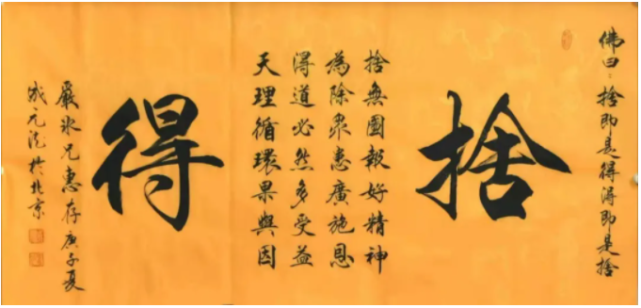 佛曰：捨即是得得即是捨
捨
捨無圖報好精神
為除眾患廣施恩
得道必然多受益
天理循環果與因
得
嚴冰兄惠存庚子夏
成元德於北京